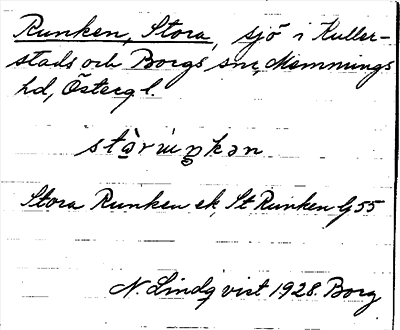 Runken, Stora, sjö i Kuller-
stads och Borgs snr, Memmings
hd, Östergl.
Stora Runken ek, St Runken G 55
N. Lindqvist 1928. Borg